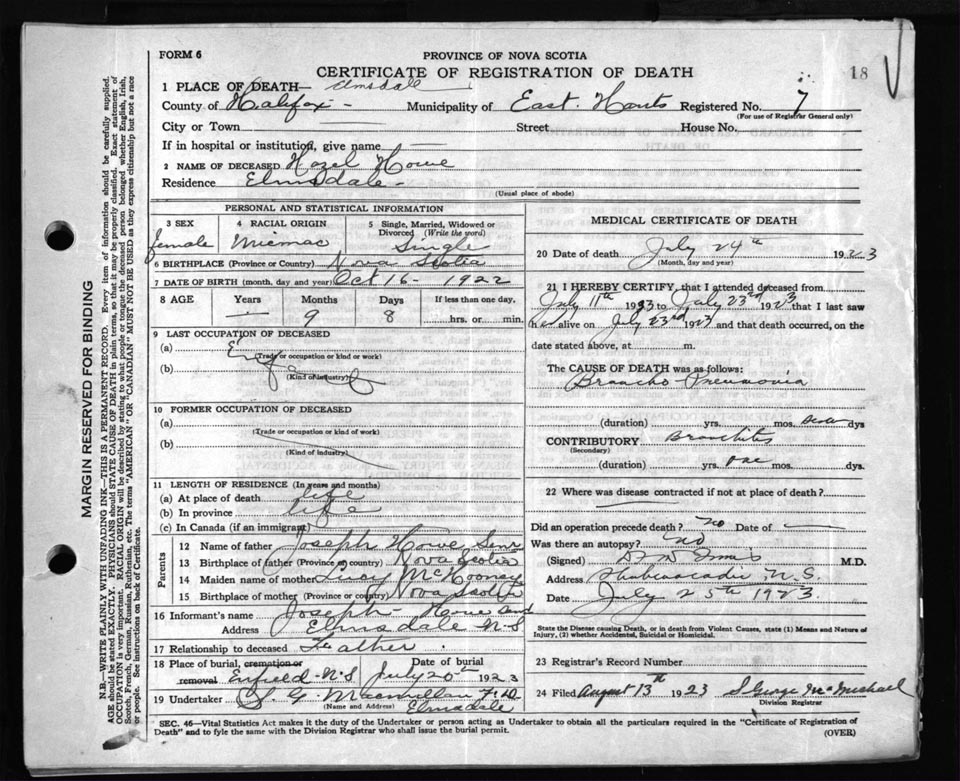 FORM 6
PROVINCE OF NOVA SCOTIA
CERTIFICATE OF REGISTRATION OF DEATH
18
1 PLACE OF DEATH— Elmsdale
County of Halifax - Municipality of East. Hants Registered No. 7
(For use of Registrar General only)
City or Town Street House No.
If in hospital or institution, give name —
2 NAME OF DECEASED Hazel Howe
Residence Elmsdale -
(Usual place of abode)
PERSONAL AND STATISTICAL INFORMATION
3 SEX 4 RACIAL ORIGIN 5 Single, Married, Widowed or Divorced (Write the word)
female Micmac Single
6 BIRTHPLACE (Province or Country) Nova Scotia
7 DATE OF BIRTH (month, day and year) Oct 16 - 1922
8 AGE Years Months Days If less than one day,
— 9 8 hrs. or min.
9 LAST OCCUPATION OF DECEASED
(a)
(Trade or occupation or kind of work)
(b)
(Kind of industry)
10 FORMER OCCUPATION OF DECEASED
(a)
(Trade or occupation or kind of work)
(b)
(Kind of industry)
11 LENGTH OF RESIDENCE (In years and months)
(a) At place of death life
(b) In province life
(c) In Canada (if an immigrant)
Parents
12 Name of father Joseph Howe Senr
13 Birthplace of father (Province or country) Nova Scotia
14 Maiden name of mother Lucy
15 Birthplace of mother (Province or country) Nova Scotia
16 Informant's name Joseph Howe
Address Elmsdale N.S
17 Relationship to deceased Father
18 Place of burial, cremation or removal Enfield - N.S Date of burial July 1923
19 Undertaker S. G. Macmillan
(Name and Address) Elmsdale
MEDICAL CERTIFICATE OF DEATH
20 Date of death July 24th 1923
(Month, day and year)
21 I HEREBY CERTIFY, that I attended deceased from
July 11th 1923 to July 23rd 1923 that I last saw
her alive on July 23rd 1923 and that death occurred, on the
date stated above, at m.
The CAUSE OF DEATH was as follows:
Broncho-Pneumonia
(duration) yrs. mos. dys
CONTRIBUTORY Bronchitis
(Secondary)
(duration) yrs. one mos. dys.
22 Where was disease contracted if not at place of death?
Did an operation precede death? no Date of —
Was there an autopsy? no
(Signed) M.D.
Address Shubenacadie, N.S.
Date July 25th 1923.
State the Disease causing Death, or in death from Violent Causes, state (1) Means and Nature of
Injury, (2) whether Accidental, Suicidal or Homicidal.
23 Registrar's Record Number
24 Filed August 13th 1923 S George McMichael
Division Registrar
SEC. 46—Vital Statistics Act makes it the duty of the Undertaker or person acting as Undertaker to obtain all the particulars required in the "Certificate of Registration of
Death" and to fyle the same with the Division Registrar who shall issue the burial permit.
(OVER)
MARGIN RESERVED FOR BINDING
N.B.—WRITE PLAINLY WITH UNFADING INK—THIS IS A PERMANENT RECORD. Every item of information should be carefully supplied.
AGE should be stated EXACTLY. PHYSICIANS should STATE CAUSE OF DEATH in plain terms, so that it may be properly classified. Exact statement of
OCCUPATION is very important. RACIAL ORIGIN will be described by stating to what people or tongue the deceased person belonged whether English, Irish,
Scotch, French, German, Russian, Ruthenian, etc. The terms "AMERICAN" OR "CANADIAN" MUST NOT BE USED as they express citizenship but not a race
or people. See instructions on back of Certificate.